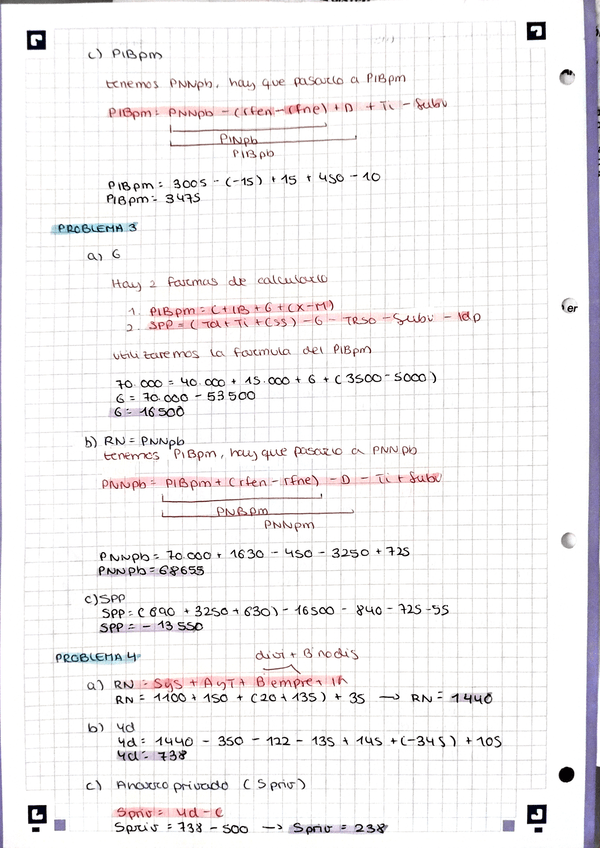 c) PIBpm
tenemos PNNpb, hay que pasarlo a PIBpm
PIBpm = PNNpb - (rfen - rfne) + D + Ti - Subv
PINpb
PIBpb
PIBpm = 3005 - (-15) + 15 + 450 - 10
PIBpm = 3475
PROBLEMA 3
a) G
Hay 2 formas de calcularlo
1. PIBpm = C + IB + G + (X-M)
2. SPP = (Td + Ti + CSS) - G - TRSO - Subv - Idp
utilizaremos la formula del PIBpm
70.000 = 40.000 + 15.000 + G + (3500 - 5000)
G = 70.000 - 53500
G = 16500
b) RN = PNNpb
tenemos PIBpm, hay que pasarlo a PNNpb
PNNpb = PIBpm + (rfen - rfne) - D - Ti + Subv
PNBpm
PNNpm
PNNpb = 70.000 + 1630 - 450 - 3250 + 725
PNNpb = 68655
c) SPP
SPP = (690 + 3250 + 630) - 16500 - 840 - 725 - 55
SPP = - 13550
PROBLEMA 4
divi + B nodis
a) RN = SyS + AyT + B empre + IA
RN = 1100 + 150 + (20 + 135) + 35 → RN = 1440
b) Yd
Yd = 1440 - 350 - 122 - 135 + 145 + (-345) + 105
Yd = 738
c) Ahorro privado (Spriv)
Spriv = Yd - C
Spriv = 738 - 500 → Spriv = 238
er